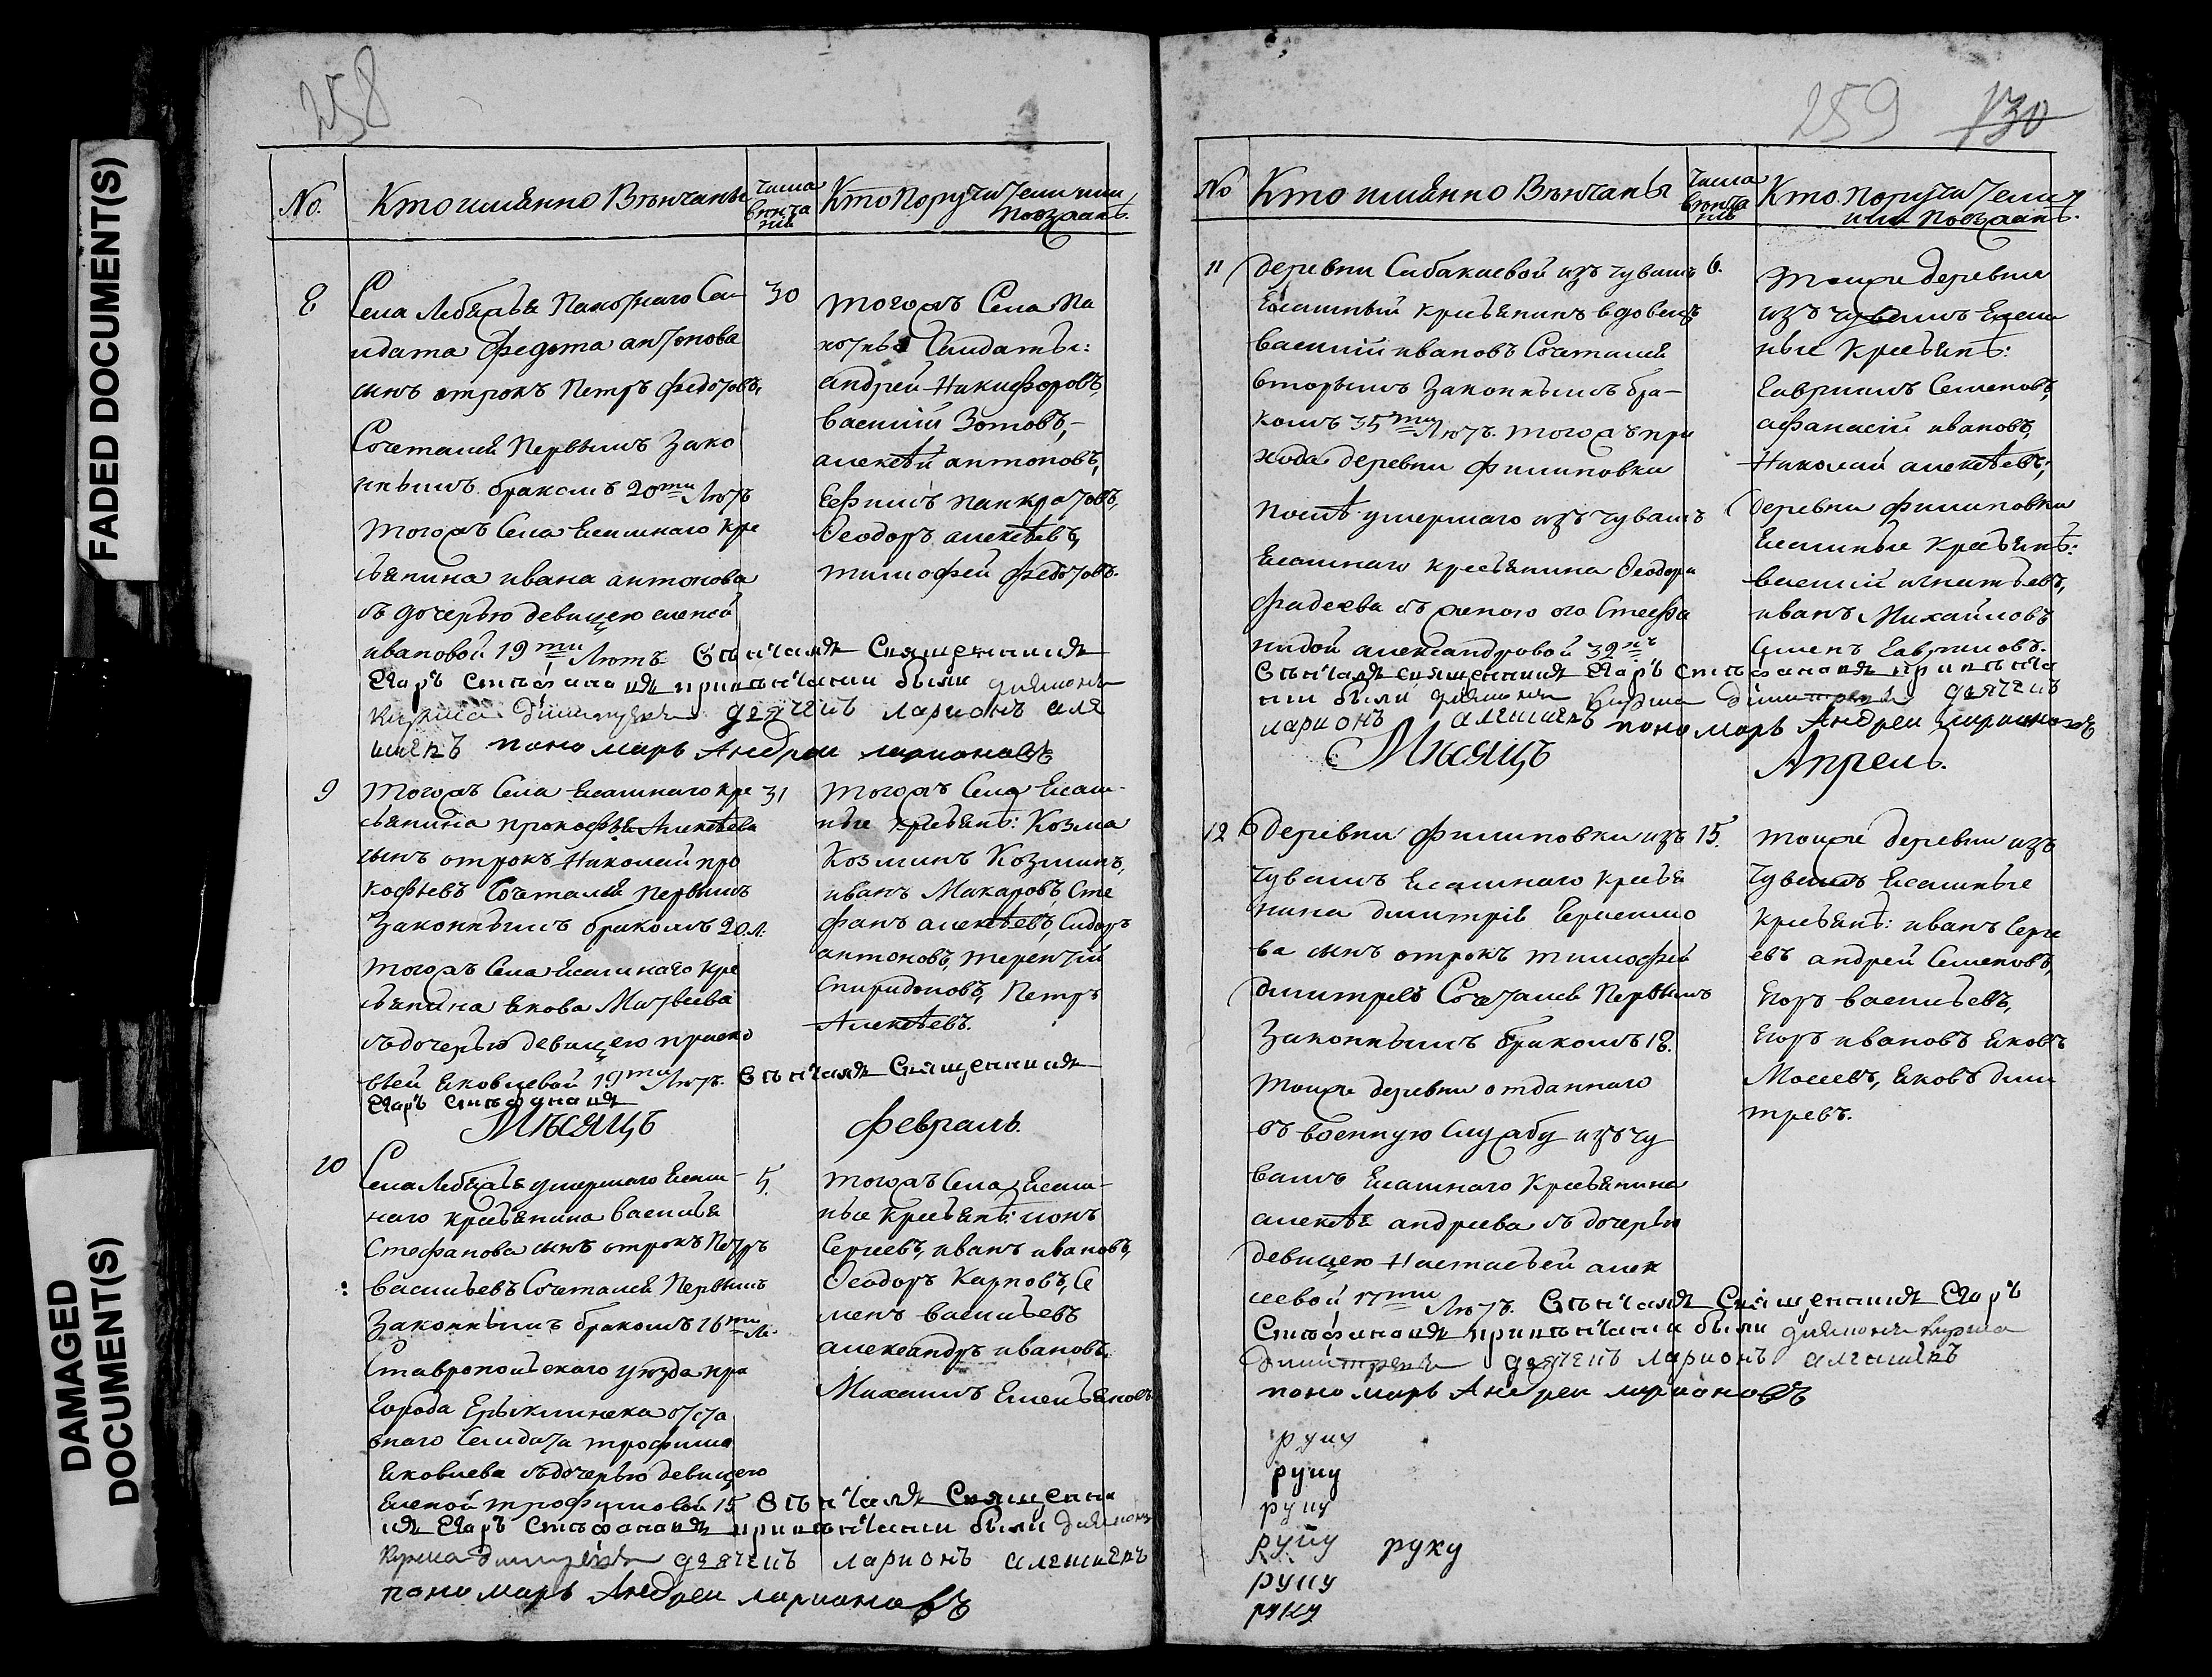 FADED DOCUMENT(S)
DAMAGED
DOCUMENT(S)
258
No.
Кто имянно Вѣнчаны
Числа
вѣнча
нiй
Кто Поручители или
Поѣзданѣ.
8
Села Лебяжья Пахотнаго Сол
дата Федота антонова
сынъ отрокъ Петръ федотовъ,
Сочетался Первымъ Зако
ннымъ бракомъ 20ти Лѣтъ
тогожъ Села Ясашнаго кре
стьянина ивана антонова
съ дочерью девицею еленой
ивановой 19ти Лѣтъ Вѣнчалъ Священникъ
Егоръ Стефановъ при вѣнчании были дияконъ
Кузма Димитревъ дячекъ ларионъ але
шинъ пономарь Андреи ларионовъ
30
тогожъ Села Па
хотные Салдаты:
андрей Никифоровъ,
василiй Зотовъ,
алексѣй антоновъ,
Ефимъ панкратовъ,
Феодоръ алексѣевъ,
тимофей федотовъ.
9
тогожъ Села Ясашнаго кре
стьянина прокофья Алексѣева
сынъ отрокъ Николай про
кофьевъ Сочетался первымъ
Законнымъ бракомъ 20. л:
тогожъ Села Ясашнаго кре
стьянина якова Матвеева
съ дочерью девицею праско
вьей яковлевой 19ти Лѣтъ. Вѣнчалъ Священникъ
Егоръ Стефановъ
31
тогожъ Села Ясаш-
ные крестьянѣ: Козма
Козминъ Козминъ,
иванъ Макаровъ, Сте
фанъ алексѣевъ, Сидоръ
антоновъ, терентiй
Спиридоновъ, Петръ
Алексѣевъ.
Мѣсяцъ
февраль.
10
Села Лебяжья умершаго Ясаш-
наго крестьянина василья
Стефанова сынъ отрокъ Петръ
васильевъ Сочетался Первымъ
Законнымъ бракомъ 16ти Л:
Ставропольскаго уѣзда при
города Ерыклинска отста
внаго Салдата трофима
яковлева съ дочерью девицею
еленой трофимовой 15 Вѣнчалъ Священни
къ Егоръ Стефановъ при вѣнчании были дияконъ
Кузма Димитревъ дячекъ ларионъ алешинъ
пономарь Андреи ларионовъ
5.
тогожъ Села Ясаш-
ные крестьянѣ: ионъ
Сергеевъ, иванъ ивановъ,
Феодоръ Карповъ, Се
менъ васильевъ
александръ ивановъ
Михаилъ Емельяновъ
259 130
No
Кто имянно Вѣнчаны
Числа
вѣнча
нiй
Кто Поручители
или Поѣзданѣ.
11
деревни Сабакаевой изъ чувашъ
Ясашный крестьянинъ вдовецъ
василiй ивановъ Сочетался
вторымъ Законнымъ бра-
комъ 35ти Лѣтъ. тогожъ при
хода деревни филиповки
послѣ умершаго изъ чувашъ
Ясашнаго крестьянина Феодора
фадеева съ женою его Стефа
нидой александровой 39ть
Вѣнчалъ священникъ Егоръ Стефановъ при вѣнча
нии были дияконъ Кузма Димитревъ дячекъ
ларионъ алешинъ пономарь Андреи ларионовъ
6.
тоиже деревни
изъ чувашъ Ясаш
ные крестьянѣ:
Гавриилъ Семеновъ,
афанасiй ивановъ,
Николай алексѣевъ,
деревни филиповки
Ясашные крестьянѣ:
василiй игнатьевъ,
иванъ Михайловъ
Семенъ Гавриловъ.
Мѣсяцъ
Апрель.
12
деревни филиповки изъ
чувашъ Ясашнаго крестья
нина дмитрiя Герасимо
ва сынъ отрокъ тимофей
дмитревъ Сочетался Первымъ
Законнымъ бракомъ 18.
тоиже деревни отданнаго
въ военную Службу изъ чу
вашъ Ясашнаго крестьянина
алексѣя андреева съ дочерью
девицею Настасьей алек
сеевой 17ти Лѣтъ. Вѣнчалъ Священникъ Егоръ
Стефановъ при вѣнчании были дияконъ Кузма
Димитревъ дячекъ ларионъ алешинъ
пономарь Андреи ларионовъ
15.
тоиже деревни изъ
чувашъ Ясашные
крестьянѣ: иванъ Серге
евъ андрей Семеновъ,
Егоръ васильевъ,
Егоръ ивановъ яковъ
Мосеевъ, яковъ дми
тревъ.
руку
руку
руку
руку руку
руку
руку